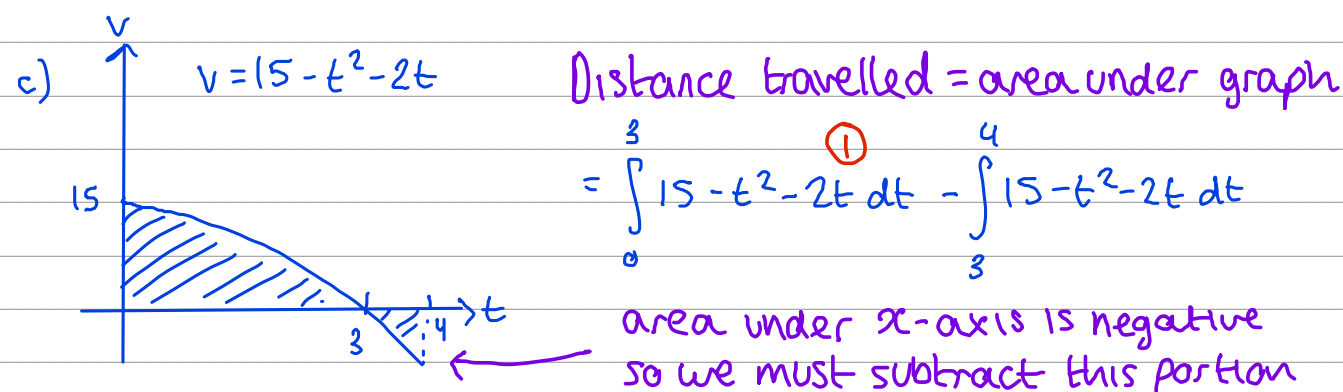 c)
v
v = 15 - t² - 2t
15
3
4
t
Distance travelled = area under graph
①
= ∫₀³ 15 - t² - 2t dt - ∫₃⁴ 15 - t² - 2t dt
area under x-axis is negative
so we must subtract this portion